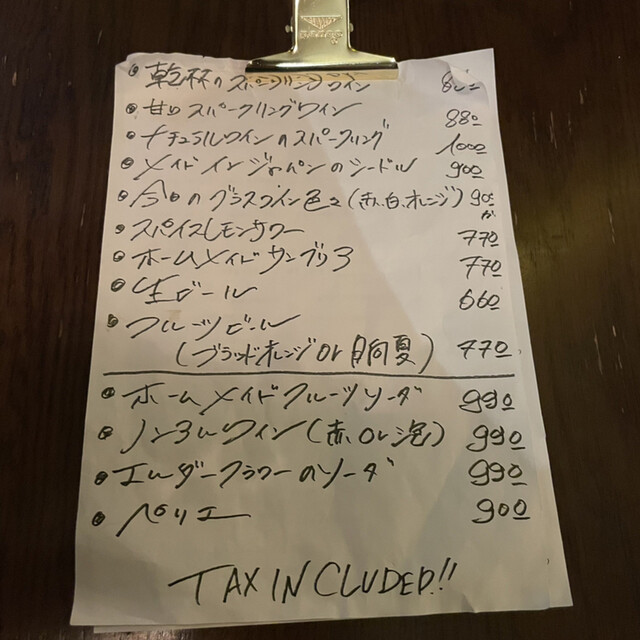 • 乾杯のスパークリングワイン
• 甘口スパークリングワイン 880
• ナチュラルワインのスパークリング 1000
• メイドインジャパンのシードル 900
• 今日のグラスワイン色々(赤、白、オレンジ) 900
から
• スパイスレモンサワー 770
• ホームメイドサングリア 770
• 生ビール 660
• フルーツビール
(ブラッドオレンジor日向夏) 770
• ホームメイドフルーツソーダ 990
• ノンアルワイン(赤、or泡) 990
• エルダーフラワーのソーダ 990
• ペリエ 900
TAX INCLUDED!!